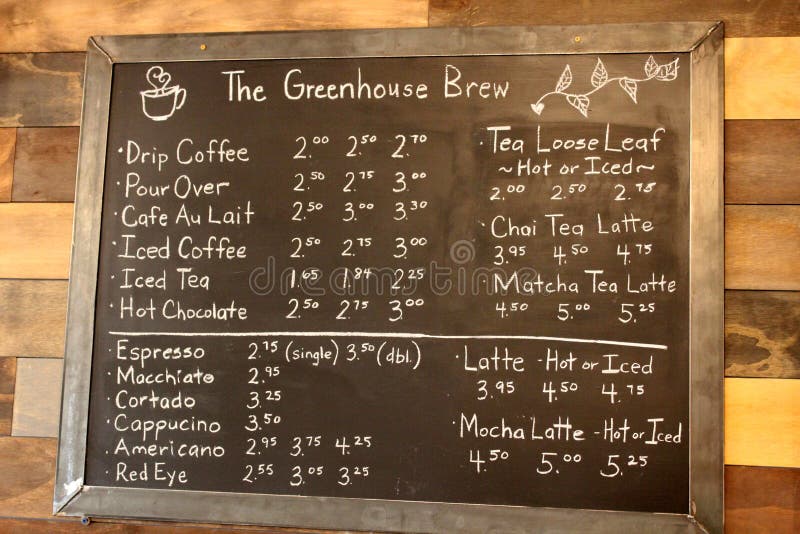 The Greenhouse Brew
· Drip Coffee 2.00 2.50 2.70
· Pour Over 2.50 2.75 3.00
· Cafe Au Lait 2.50 3.00 3.30
· Iced Coffee 2.50 2.75 3.00
· Iced Tea 1.65 1.84 2.25
· Hot Chocolate 2.50 2.75 3.00
· Tea Loose Leaf
~Hot or Iced~
2.00 2.50 2.75
· Chai Tea Latte
3.95 4.50 4.75
· Matcha Tea Latte
4.50 5.00 5.25
· Espresso 2.75 (single) 3.50 (dbl.)
· Macchiato 2.95
· Cortado 3.25
· Cappucino 3.50
· Americano 2.95 3.75 4.25
· Red Eye 2.55 3.05 3.25
· Latte - Hot or Iced
3.95 4.50 4.75
· Mocha Latte - Hot or Iced
4.50 5.00 5.25
dreamstime